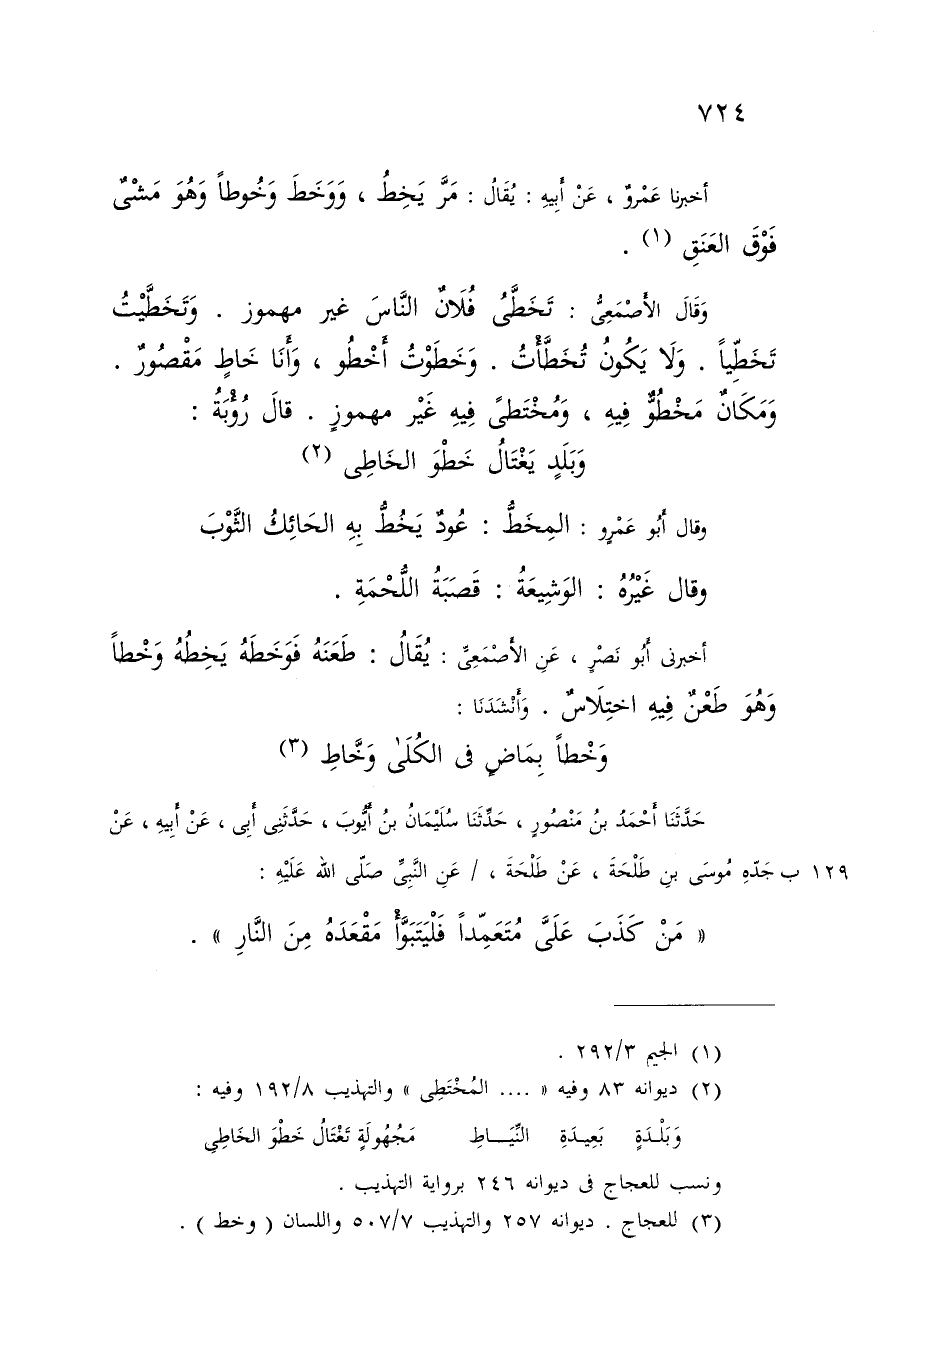 ٧٢٤
أخبرنا عَمْروٌ ، عَنْ أَبِيهِ : يُقَالُ : مَرَّ يَخِطُ ، وَوَخَطَ وَخُوطاً وَهُوَ مَشْىٌ
فَوْقَ العَنَقِ (١) .
وَقَالَ الأَصْمَعِىُّ : تَخَطَّىُ فُلَانٌ النَّاسَ غير مهموز . وَتَخَطَّيْتُ
تَخَطِّياً . وَلَا يَكُونُ تُخَطَّأْتُ . وَخَطَوْتُ أَخْطُو ، وَأَنَا خَاطٍ مَقْصُورٌ .
وَمَكَانٌ مَخْطُوٌّ فِيهِ ، وَمُخْتَطىً فِيهِ غَيْر مهموزٍ . قالَ رُؤْبَةُ :
وَبَلَدٍ يَغْتَالُ خَطْوَ الخَاطِى (٢)
وقال أَبُو عَمْرٍو : المِخَطُّ : عُودٌ يَخُطُّ بِهِ الحَائِكُ الثَّوْبَ
وقال غَيْرُهُ : الوَشِيعَةُ : قَصَبَةُ اللُّحْمَةِ .
أخبرنى أَبُو نَصْرٍ ، عَنِ الأَصْمَعِىِّ : يُقَالُ : طَعَنَهُ فَوَخَطَهُ يَخِطُهُ وَخْطاً
وَهُوَ طَعْنٌ فِيهِ اختِلَاسٌ . وَأَنْشَدَنَا :
وَخْطاً بِمَاضٍ فى الكُلَىٰ وَخَّاطِ (٣)
حَدَّثَنَا أَحْمَدُ بنُ مَنْصُورٍ ، حَدَّثَنَا سُلَيْمَانُ بنُ أَيُّوبَ ، حَدَّثَنِى أَبِى ، عَنْ أَبِيهِ ، عَنْ
١٢٩ ب جَدِّهِ مُوسَى بنِ طَلْحَةَ ، عَنْ طَلْحَةَ ، / عَنِ النَّبِىِّ صَلَّى الله عَلَيْهِ :
« مَنْ كَذَبَ عَلَىَّ مُتَعَمِّداً فَلْيَتَبَوَّأْ مَقْعَدَهُ مِنَ النَّارِ » .
(١) الجيم ٢٩٢/٣ .
(٢) ديوانه ٨٣ وفيه « .... المُخْتَطِى » والتهذيب ١٩٢/٨ وفيه :
وَبَلْدَةٍ بَعِيدَةِ النِّيَاطِ مَجْهُولَةٍ تَغْتَالُ خَطْوَ الخَاطِي
ونسب للعجاج فى ديوانه ٢٤٦ برواية التهذيب .
(٣) للعجاج . ديوانه ٢٥٧ والتهذيب ٥٠٧/٧ واللسان ( وخط ) .